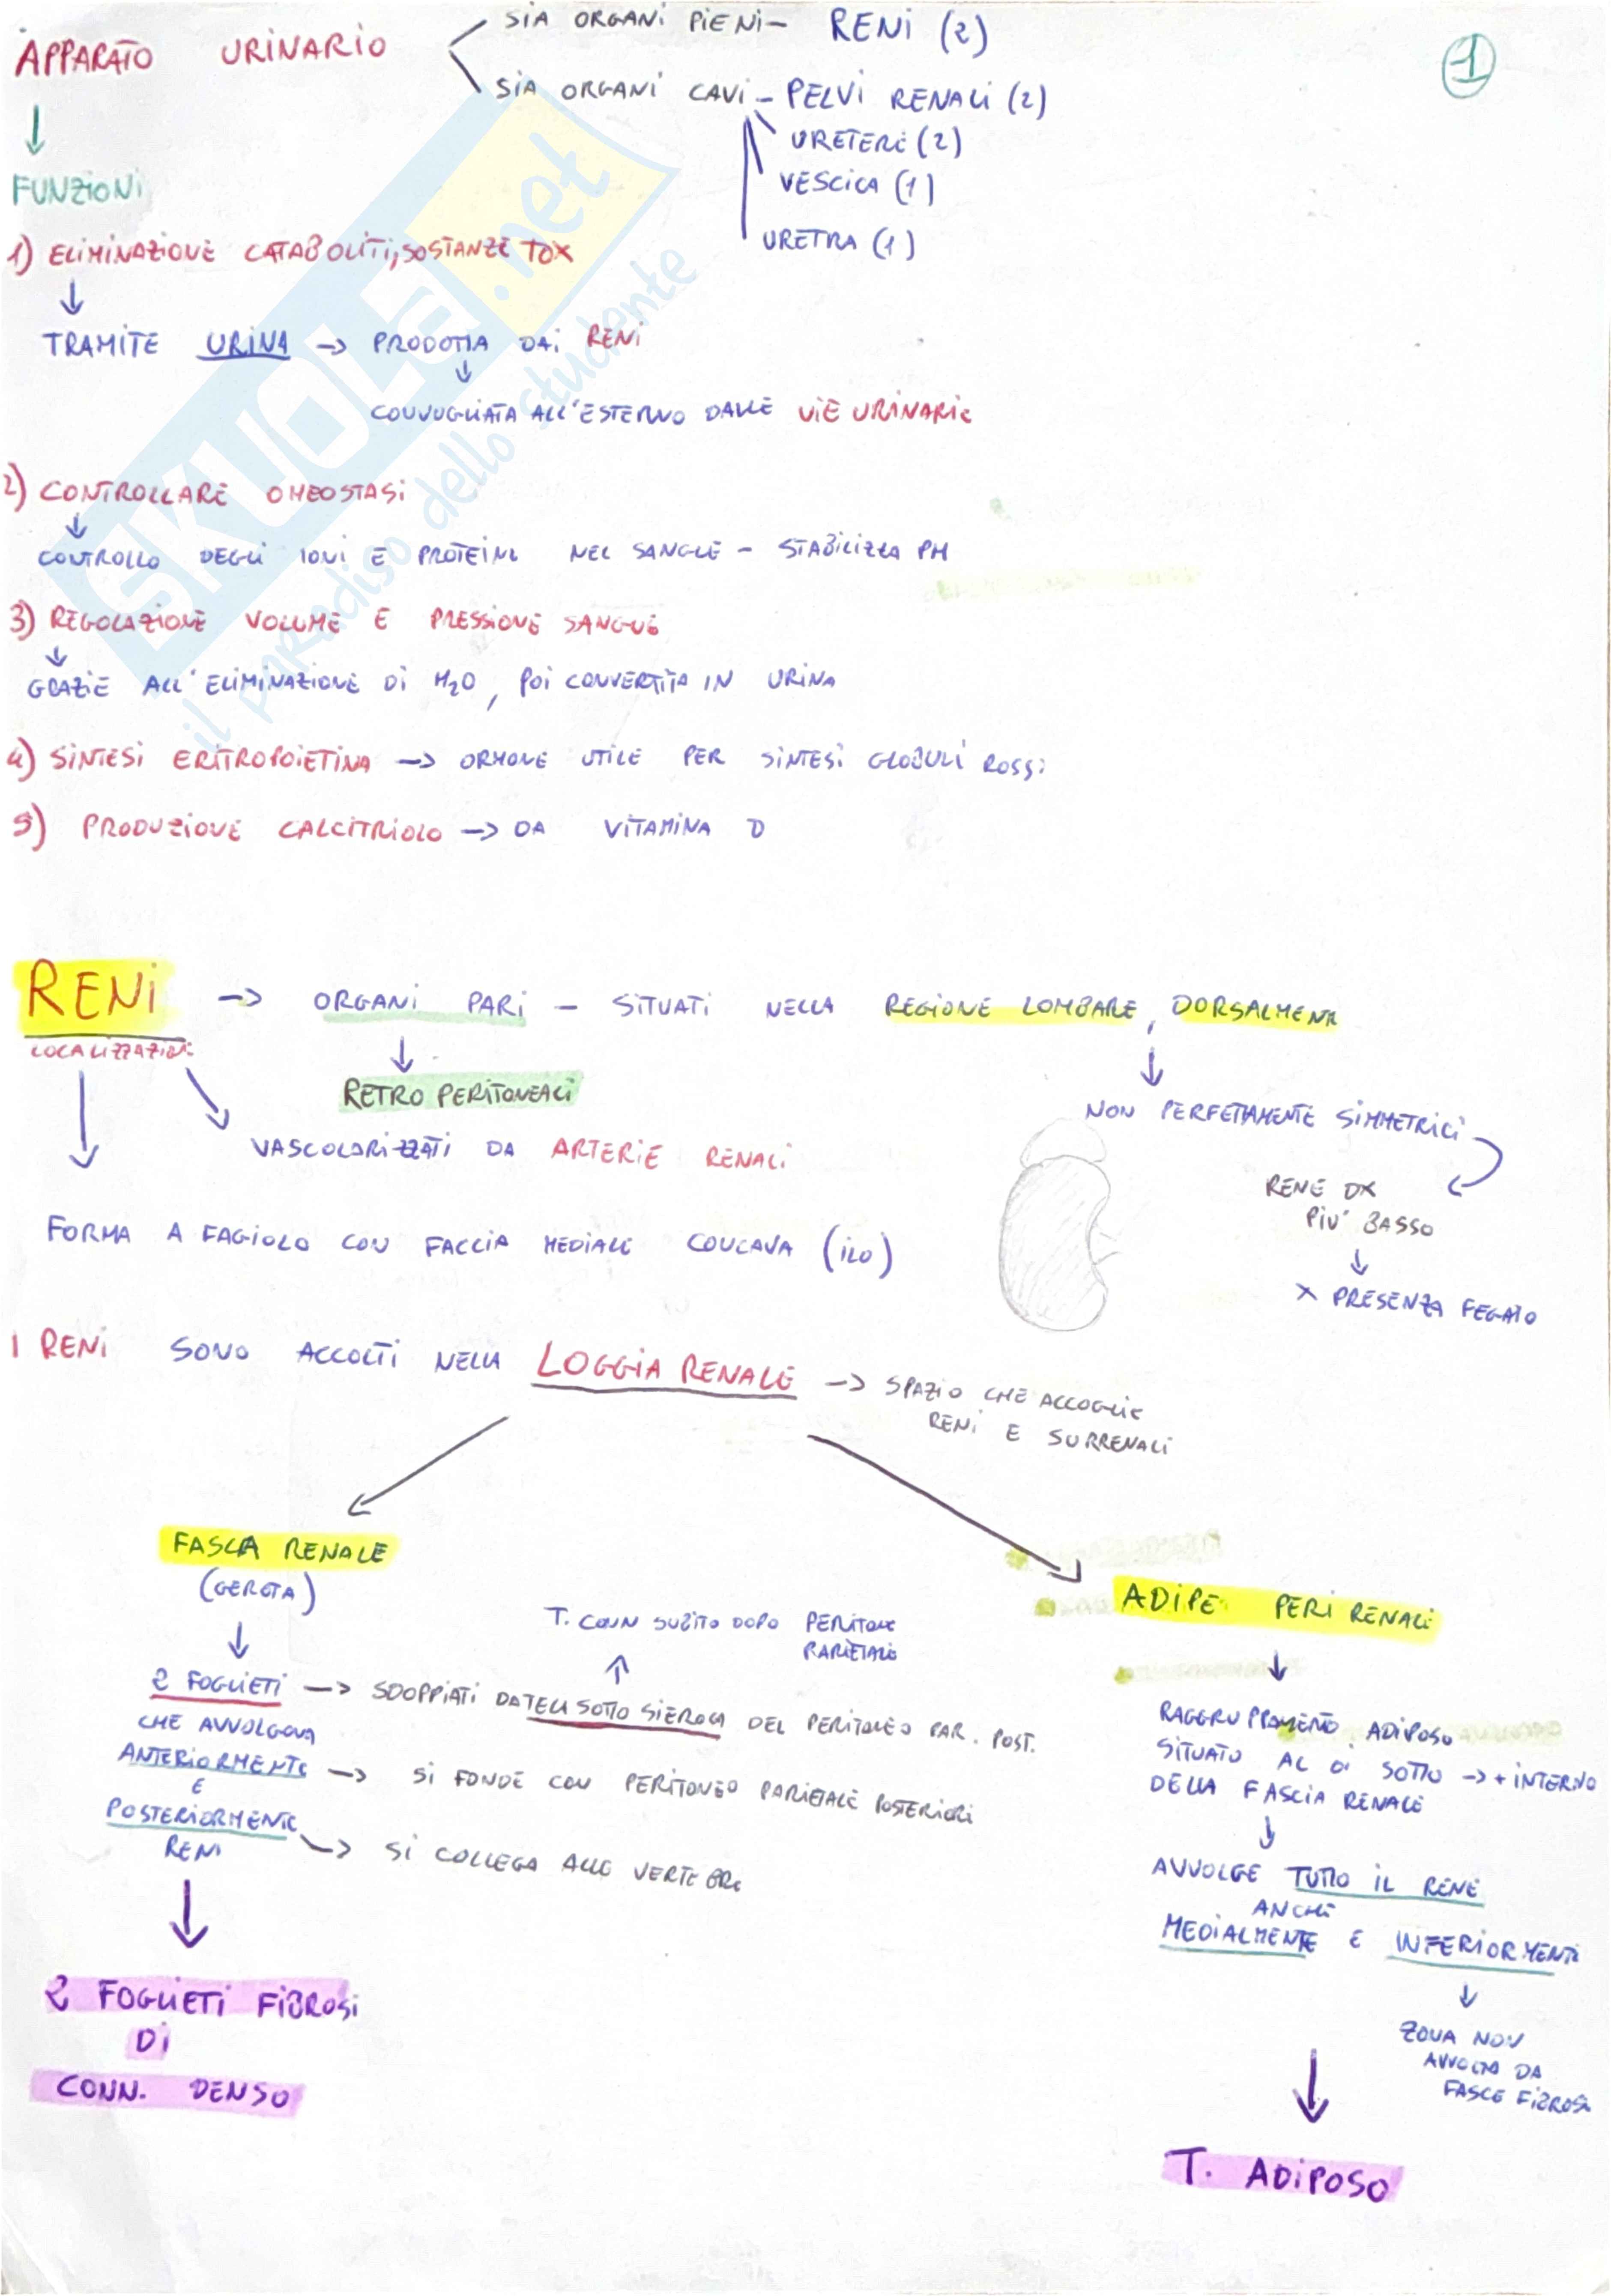 1
APPARATO URINARIO
SIA ORGANI PIENI - RENI (2)
SIA ORGANI CAVI - PELVI RENALI (2)
URETERE (2)
VESCICA (1)
URETRA (1)
FUNZIONI
1) ELIMINAZIONE CATABOLITI, SOSTANZE TOX
↓
TRAMITE URINA -> PRODOTTA DAI RENI
↓
CONVOGLIATA ALL'ESTERNO DALLE VIE URINARIE
2) CONTROLLARE OMEOSTASI
↓
CONTROLLO DEGLI IONI E PROTEINE NEL SANGUE - STABILIZZA PH
3) REGOLAZIONE VOLUME E PRESSIONE SANGUE
↓
GRAZIE ALL'ELIMINAZIONE DI H2O, POI CONVERTITA IN URINA
4) SINTESI ERITROPOIETINA -> ORMONE UTILE PER SINTESI GLOBULI ROSSI
5) PRODUZIONE CALCITRIOLO -> DA VITAMINA D
SKUOLA.net
il paradiso dello studente
RENI -> ORGANI PARI - SITUATI NELLA REGIONE LOMBARE, DORSALMENTE
LOCALIZZAZIONE
RETRO PERITONEALI
NON PERFETTAMENTE SIMMETRICI
VASCOLARIZZATI DA ARTERIE RENALI
RENE DX
PIU' BASSO
↓
X PRESENZA FEGATO
FORMA A FAGIOLO CON FACCIA MEDIALE CONCAVA (ILO)
I RENI SONO ACCOLTI NELLA LOGGIA RENALE -> SPAZIO CHE ACCOGLIE
RENI E SURRENALI
FASCIA RENALE
(GEROTA)
↓
T. CONN SUBITO DOPO PERITONEO
PARIETALE
2 FOGLIETI -> SDOPPIATI DA TELA SOTTO SIEROSA DEL PERITONEO PAR. POST.
CHE AVVOLGONO
ANTERIORMENTE -> SI FONDE CON PERITONEO PARIETALE POSTERIORE
E
POSTERIORMENTE -> SI COLLEGA ALLE VERTEBRE
RENI
↓
2 FOGLIETI FIBROSI
DI
CONN. DENSO
ADIPE PERI RENALE
↓
RAGGRUPPAMENTO ADIPOSO
SITUATO AL DI SOTTO -> + INTERNO
DELLA FASCIA RENALE
↓
AVVOLGE TUTTO IL RENE
ANCHE
MEDIALMENTE E INFERIORMENTE
↓
ZONA NON
AVVOLTA DA
FASCE FIBROSE
T. ADIPOSO